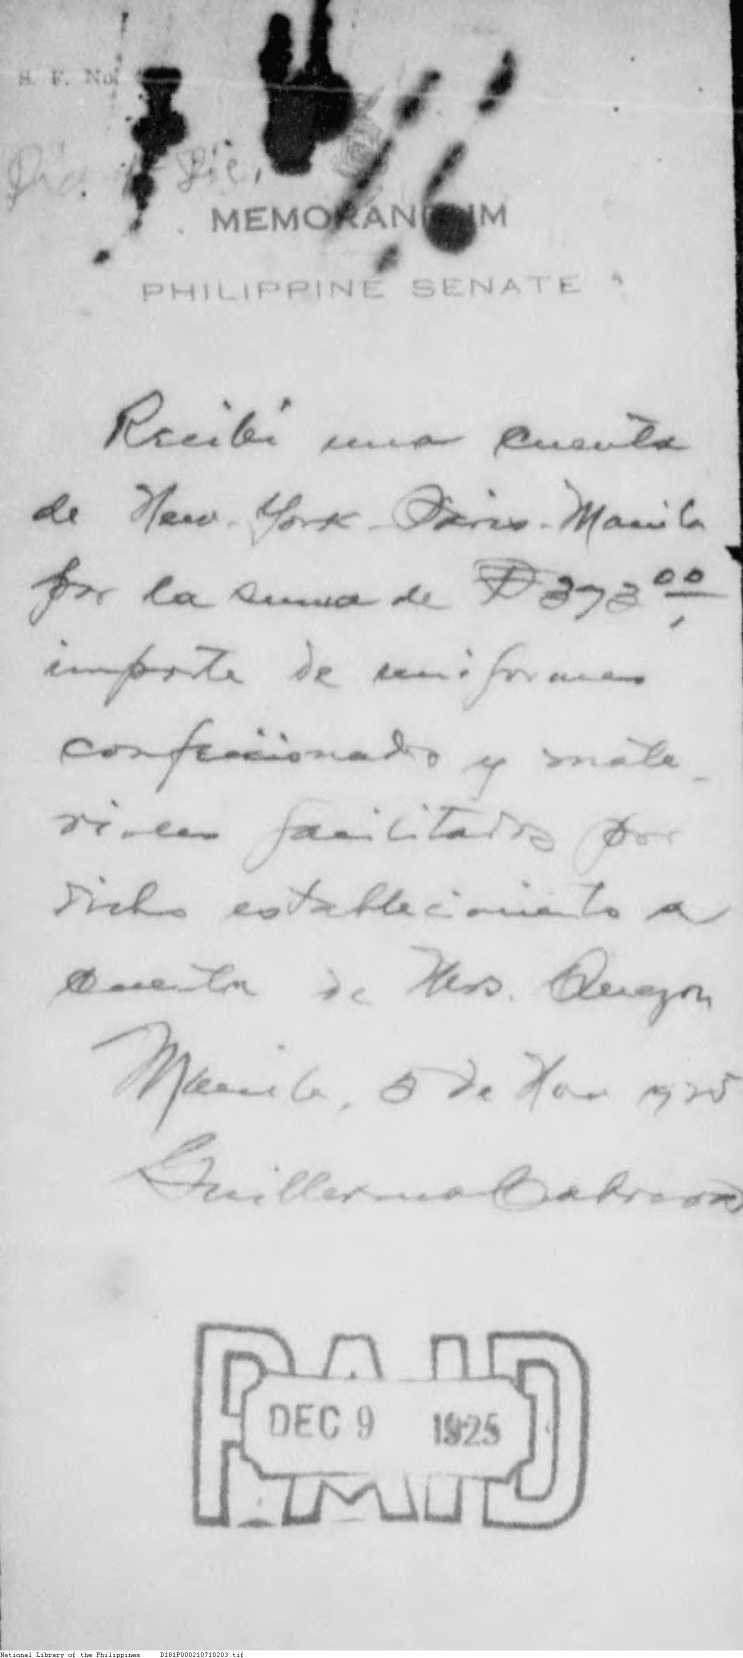 S. F. No.
Dic.
MEMORANDUM
PHILIPPINE SENATE
Recibi una cuenta
de New-York-Paris-Manila
por la suma de ₱ 373 00,
importe de uniformes
confeccionado y mate-
riales facilitados por
dicho establecimiento a
cuenta de Mrs. Quezon
Manila, 5 de Nov 1925
Guillermo Cabrera
PAID
DEC 9 1925
National Library of the Philippines D181P000210710203.tif